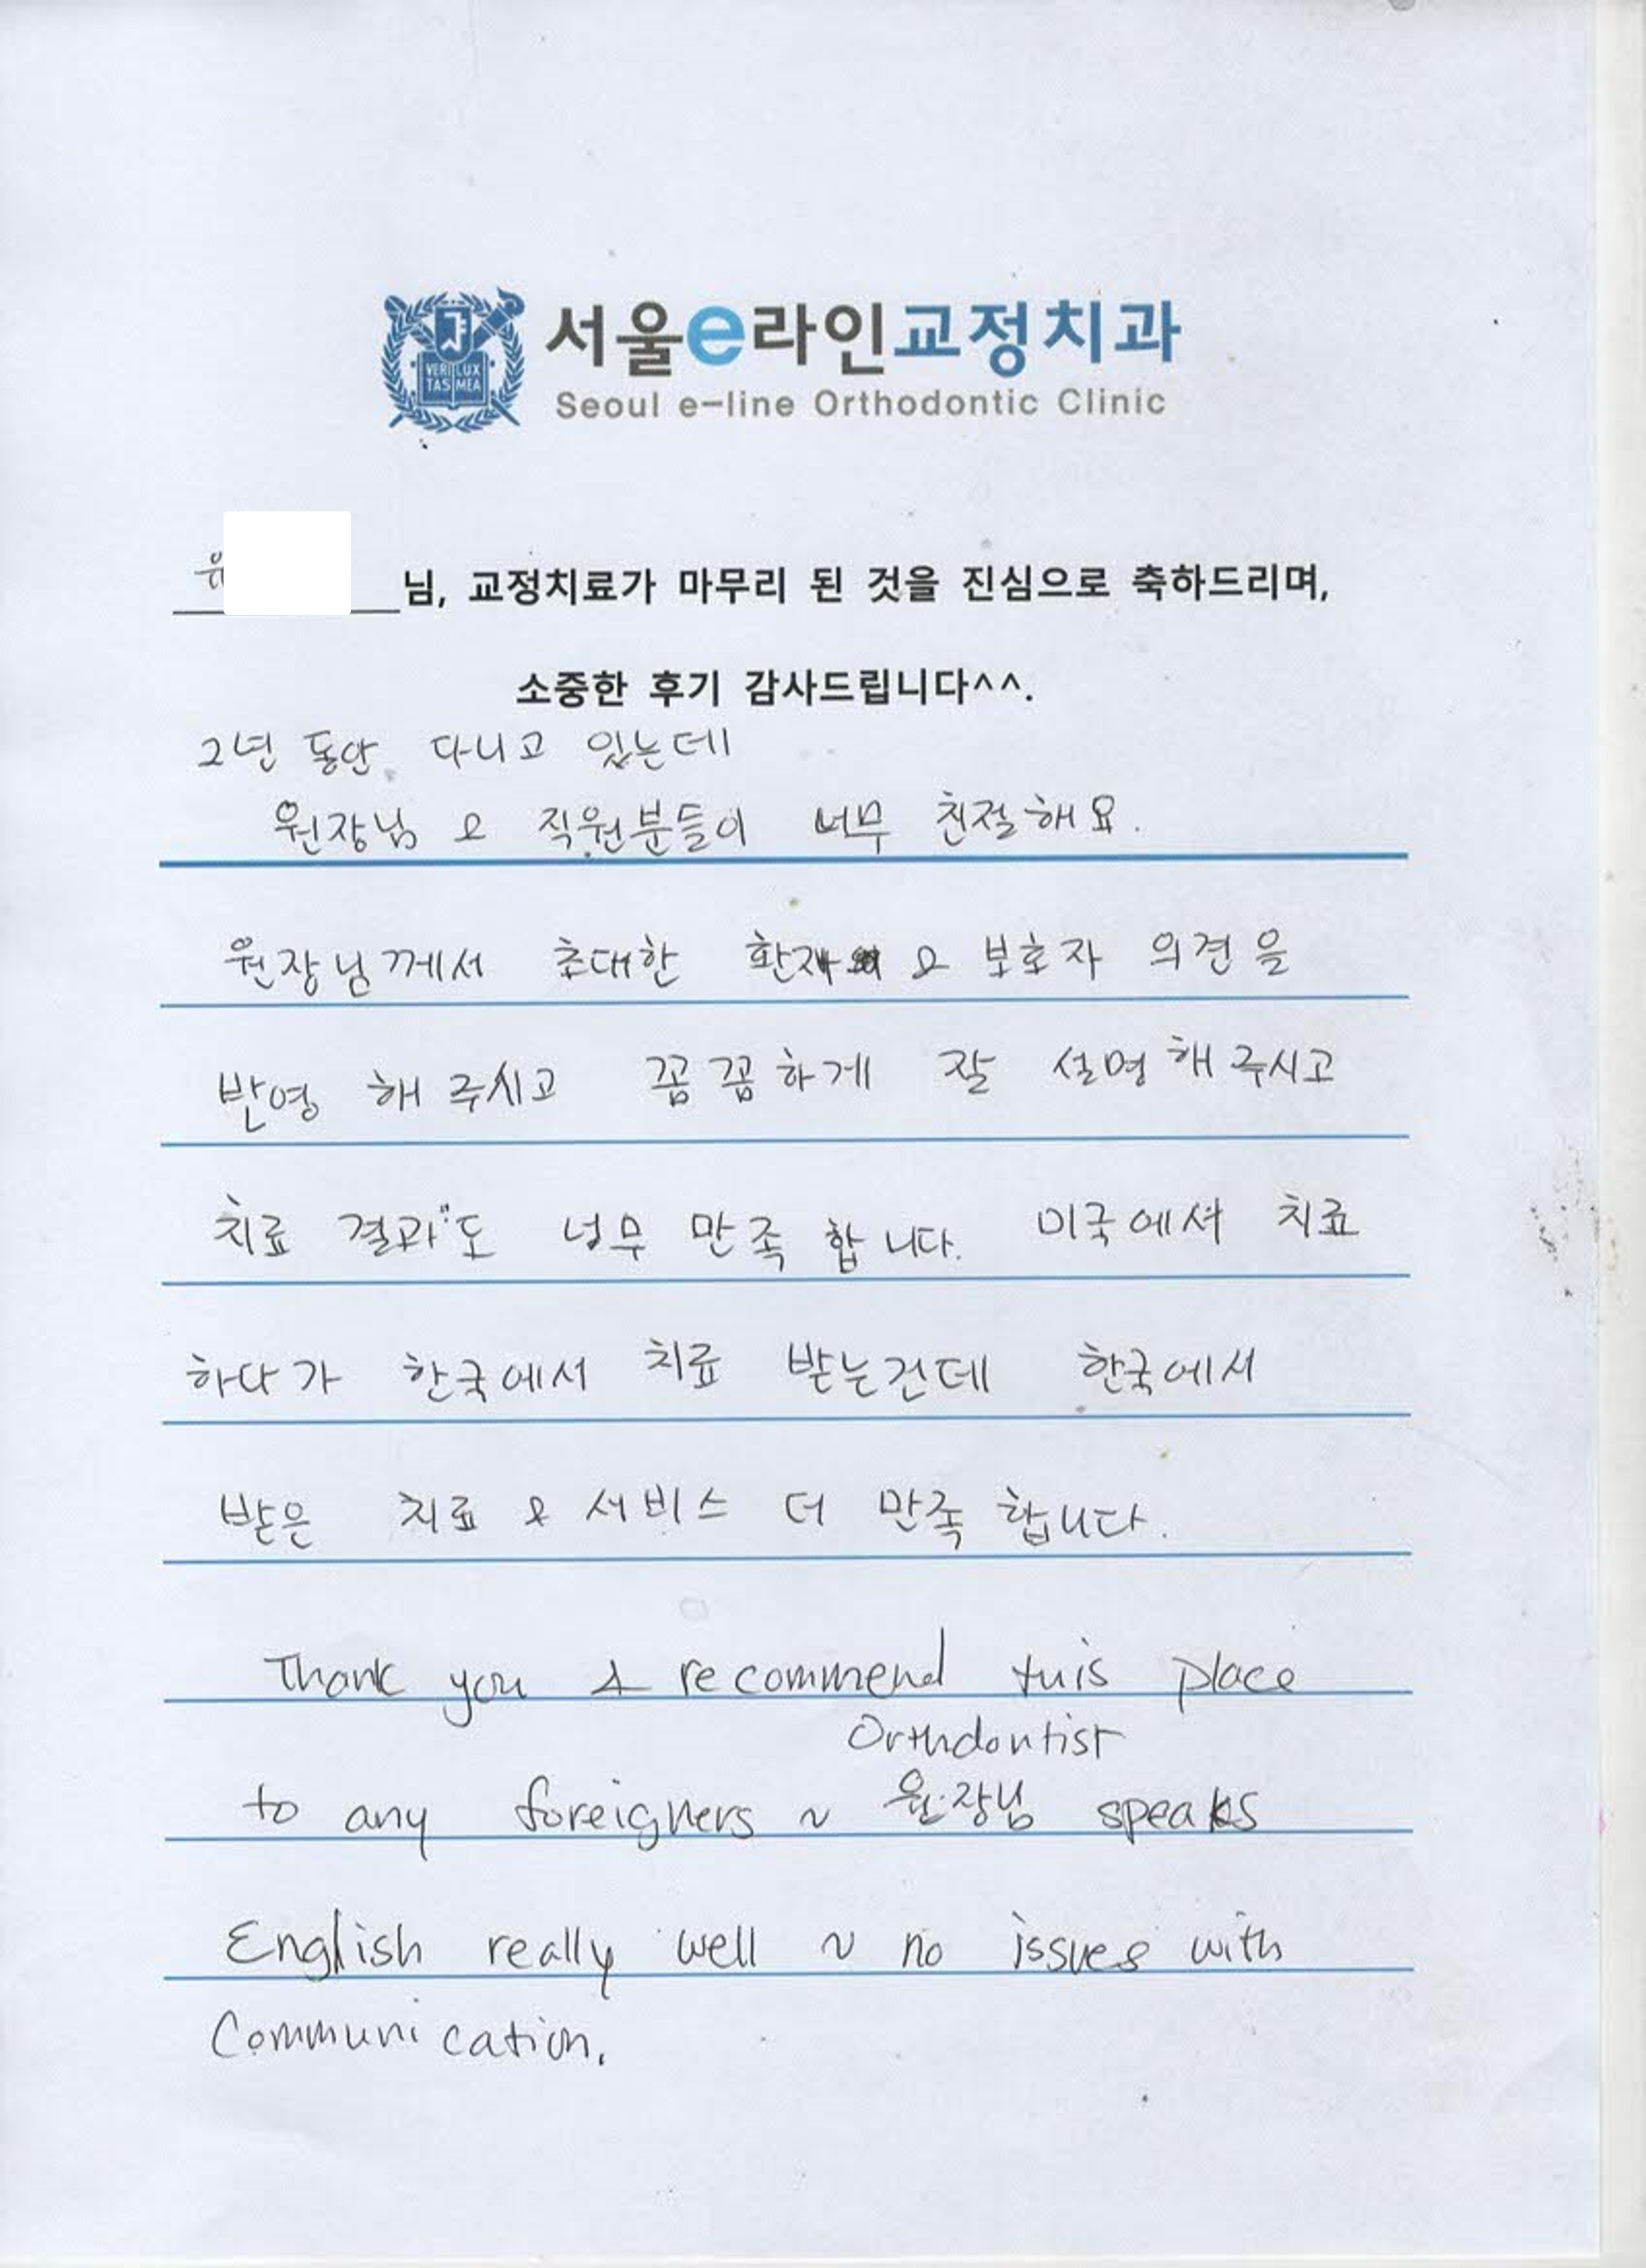 VERI LUX
TAS MEA
서울e라인교정치과
Seoul e-line Orthodontic Clinic
님, 교정치료가 마무리 된 것을 진심으로 축하드리며,
소중한 후기 감사드립니다^^.
2년 동안 다니고 있는데
원장님 & 직원분들이 너무 친절해요.
원장님께서 초대한 환자 & 보호자 의견을
반영 해 주시고 꼼꼼하게 잘 설명해 주시고
치료 결과도 너무 만족 합니다. 미국에서 치료
하다가 한국에서 치료 받는건데 한국에서
받은 치료 & 서비스 더 만족 합니다.
Thank you & recommend this place
Orthdontist
to any foreigners ~ 원장님 speaks
English really well ~ no issues with
Communication.